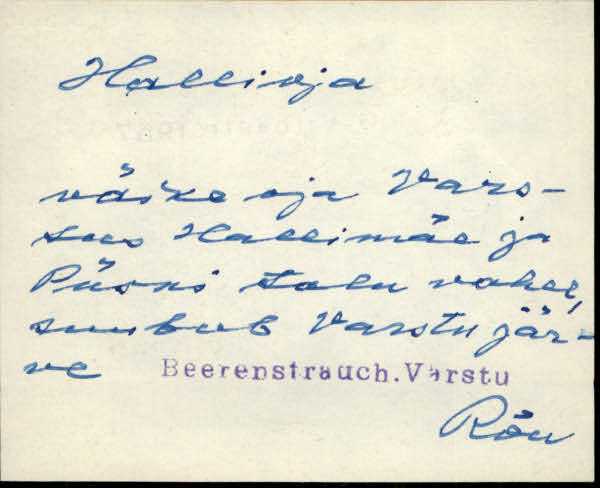 Hallioja
väike oja Vars-
tus Hallimäe ja
Püssi talu vahel,
suubub Varstu jär-
ve Beerenstrauch.Varstu
Rõu